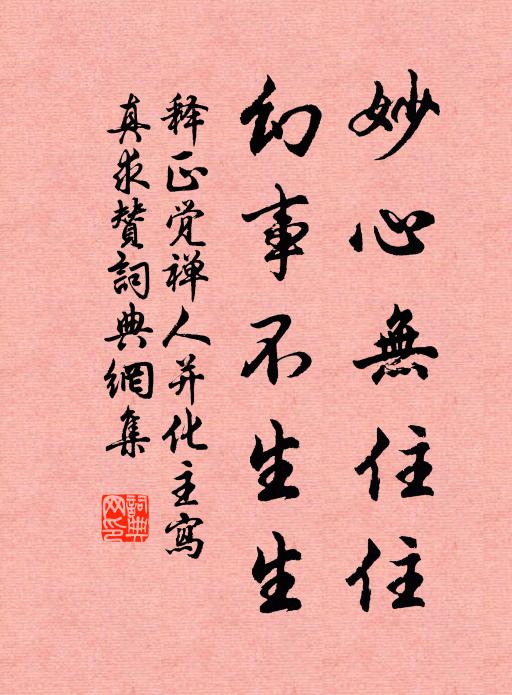 妙心無住住
幻事不生生
释正觉禅人并化主寫
真求赞詞典網集
詞典网印